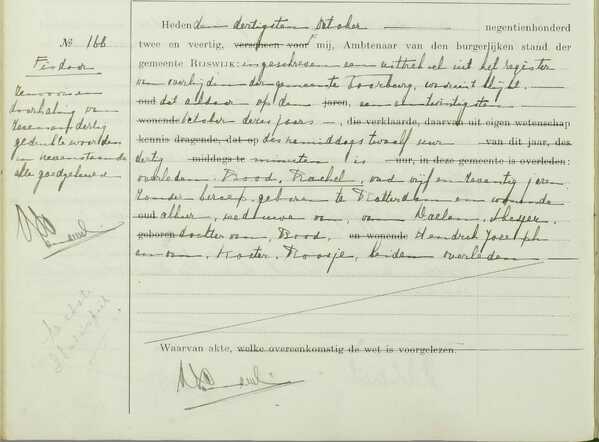 Heden den dertigsten October negentienhonderd
twee en veertig, verscheen voor mij, Ambtenaar van den burgerlijken stand der
gemeente RIJSWIJK: ingeschreven een uittreksel uit het register
van overlijden der gemeente Voorburg, waaruit blijkt
oud dat aldaar op den jaren, een en twintigsten
wonende October dezes jaars, die verklaarde, daarvan uit eigen wetenschap
kennis dragende, dat op des namiddags twaalf uur van dit jaar, des
dertig middags te minuten is uur, in deze gemeente is overleden:
overleden Rood, Rachel, oud vijf en zeventig jaren
zonder beroep, geboren te Rotterdam en wonende
oud aldaar, weduwe van, van Daelen,
geboren dochter van, Rood, en wonende Hendrik Joseph
en van, Koster, Roosje, beiden overleden
Waarvan akte, welke overeenkomstig de wet is voorgelezen.
№ 166
doorhaling van
zeven en dertig
gedrukte woorden
in nevenstaande
akte goedgekeurd